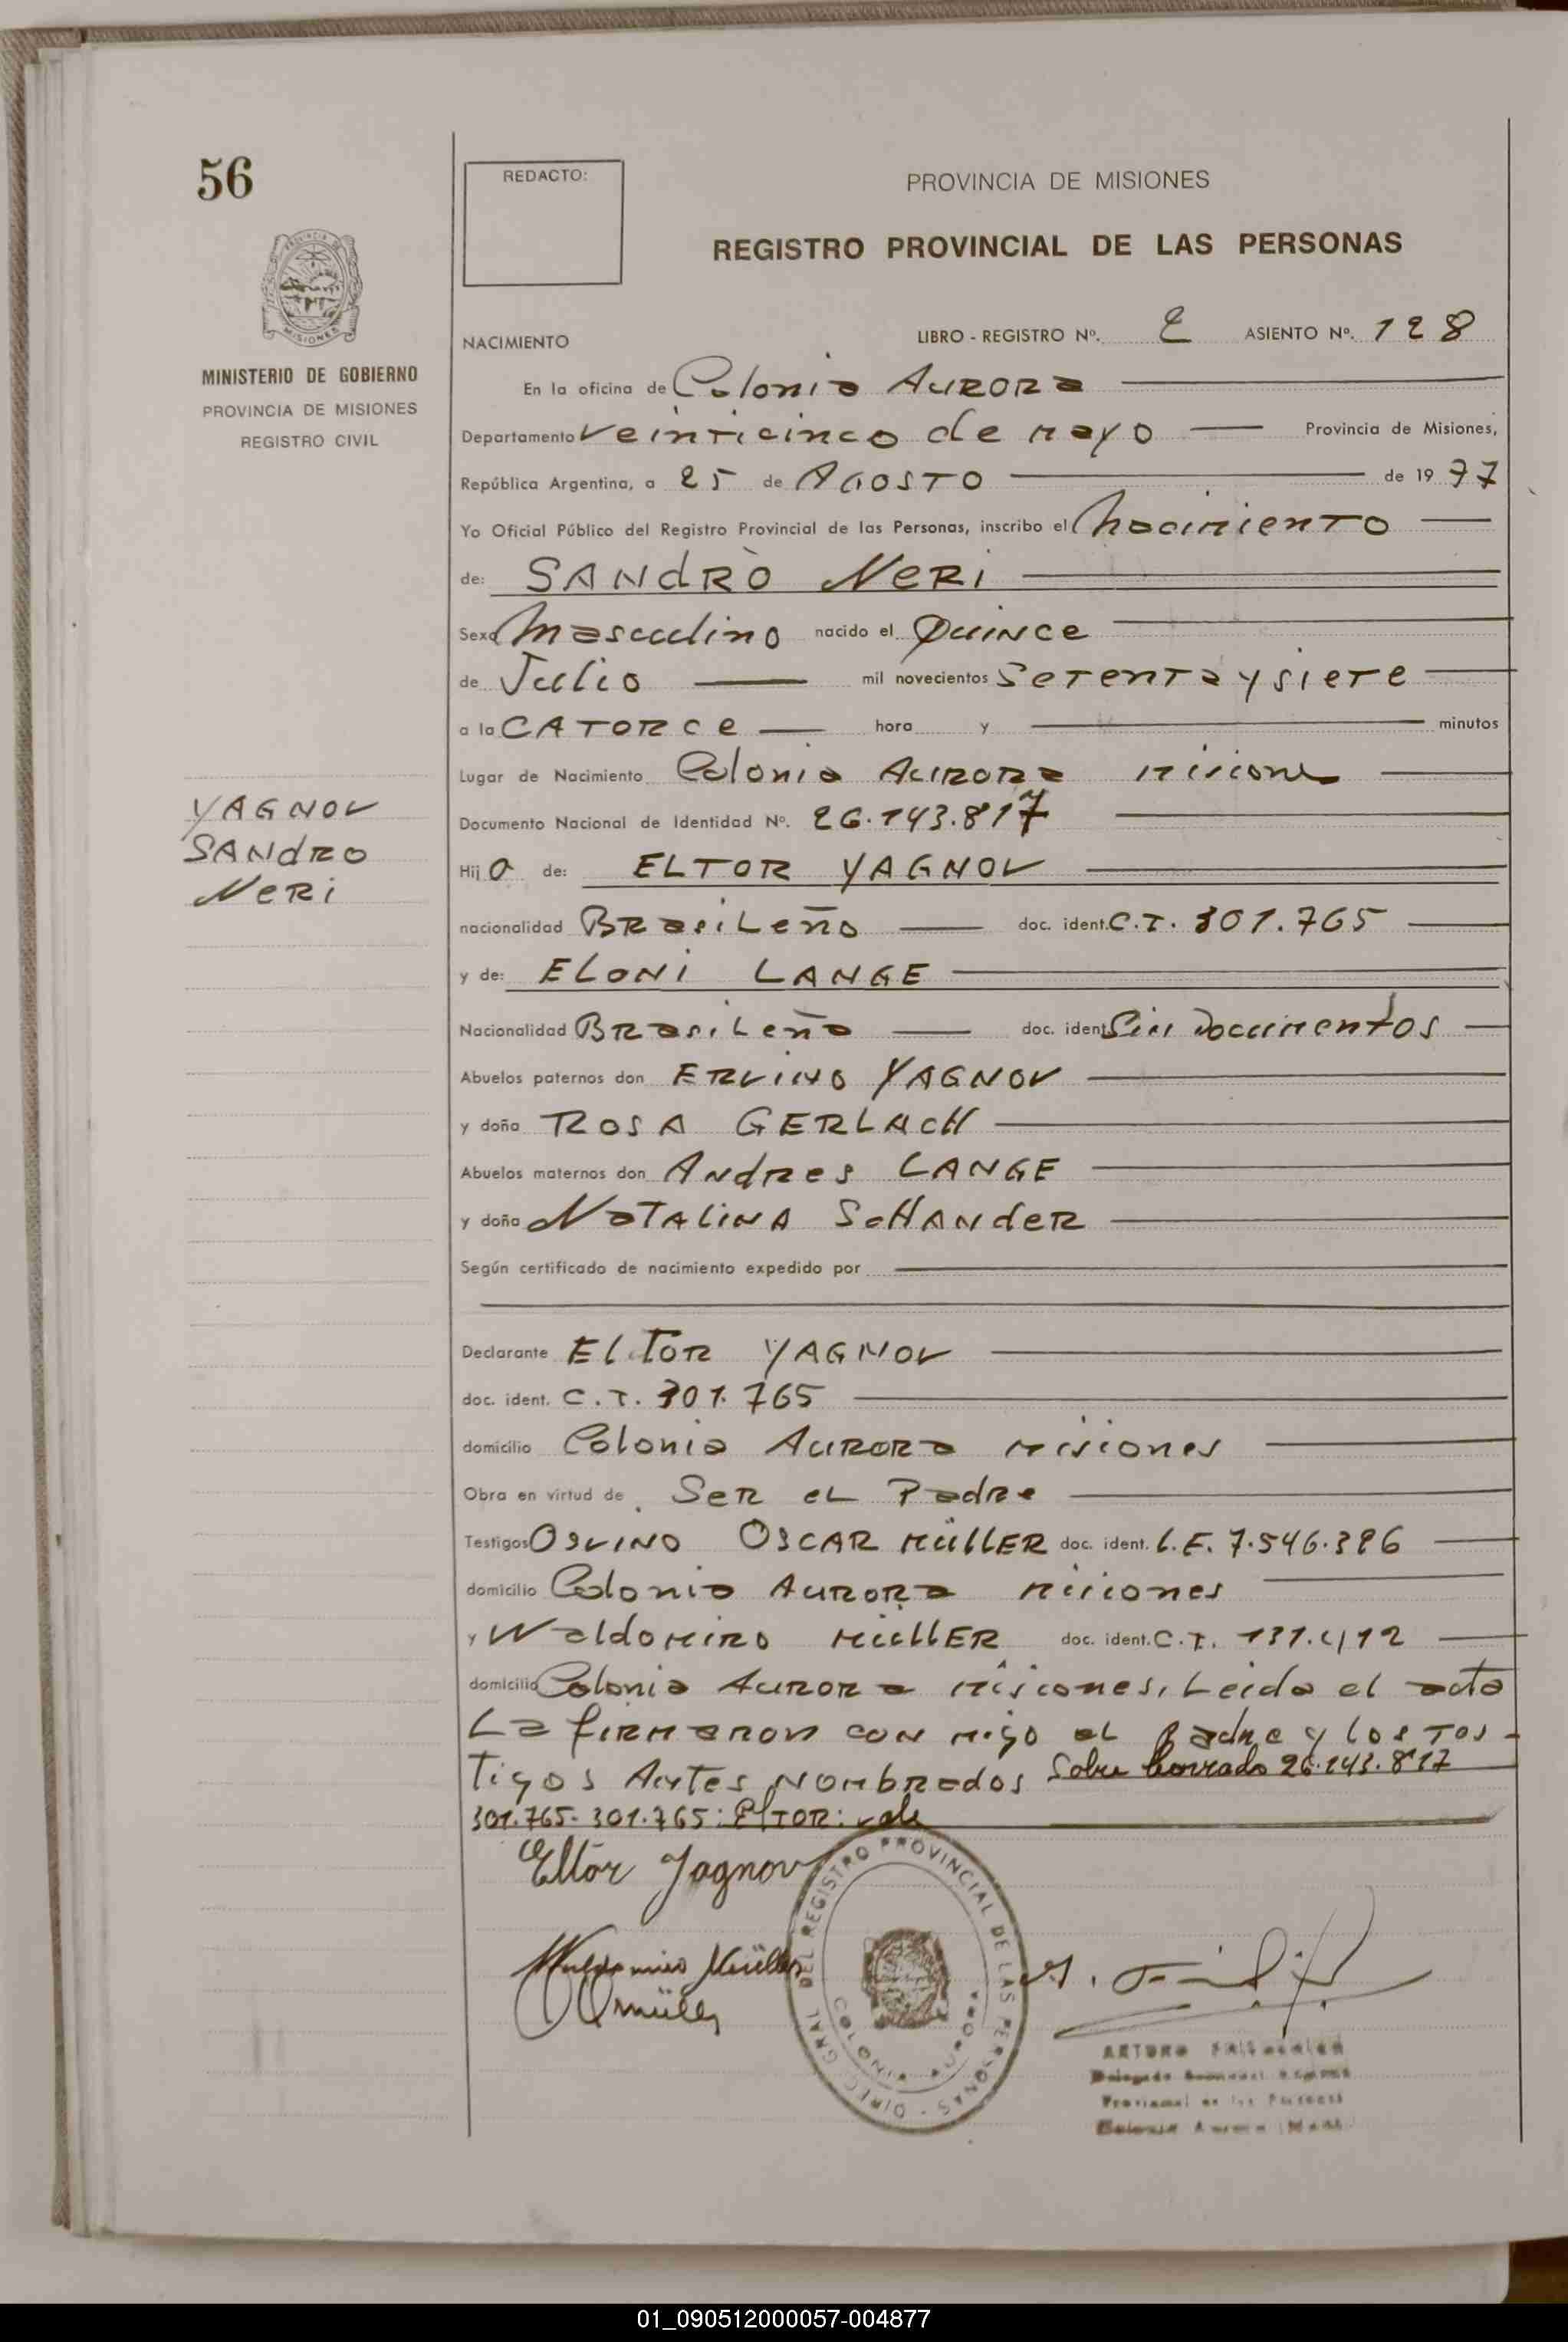 56
REDACTO:
PROVINCIA DE MISIONES
REGISTRO PROVINCIAL DE LAS PERSONAS
MISIONES
MINISTERIO DE GOBIERNO
PROVINCIA DE MISIONES
REGISTRO CIVIL
NACIMIENTO
LIBRO - REGISTRO Nº. 2 ASIENTO Nº. 128
En la oficina de Colonia AURORA
Departamento Veinticinco de mayo Provincia de Misiones,
República Argentina, a 25 de AGOSTO de 1977
Yo Oficial Público del Registro Provincial de las Personas, inscribo el nacimiento
de: SANdRO NERi
Sexo Masculino nacido el Quince
de Julio mil novecientos Setenta y siete
a la CATORCe hora y minutos
Lugar de Nacimiento Colonia AURORA Misiones
Documento Nacional de Identidad Nº. 26.143.817
YAGNOV
SANdRO
NeRi
Hijo de: ELTOR YAGNOV
nacionalidad BRasiLeño doc. ident. C.I. 301.765
y de: ELONi LANGE
Nacionalidad BRasiLeña doc. ident. Sin Documentos
Abuelos paternos don ERVINO YAGNOV
y doña ROSA GERLACH
Abuelos maternos don ANdRes LANGE
y doña NaTALiNA ScHANdeR
Según certificado de nacimiento expedido por
Declarante ELTOR YAGNOV
doc. ident. C.I. 301.765
domicilio Colonia AURORA Misiones
Obra en virtud de SeR eL PadRe
Testigos OSVINO OSCAR MüLLER doc. ident. L.E. 7.546.386
domicilio Colonia AURORA Misiones
y WaldoMiRo MüLLER doc. ident. C.I. 131.412
domicilio Colonia AURORA Misiones, Leida el acta
La fiRMaRon con migo el Padre y los Tes-
Tigos Antes Nombrados Sobre borrado 26.143.817
301.765- 301.765: ElTOR: vale
Eltor Jagnov
Waldomiro Müller
OOmüller
DIREC. GRAL. DEL REGISTRO PROVINCIAL DE LAS PERSONAS
COLONIA AURORA
ARTURO
Provincial de las Personas
Colonia Aurora
01_090512000057-004877